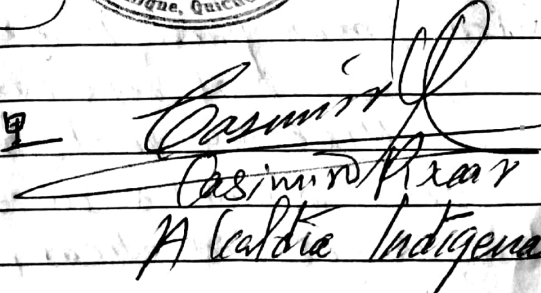 nique, Quiché
Casimiro
Casimiro Pixcar
Alcaldía Indígena